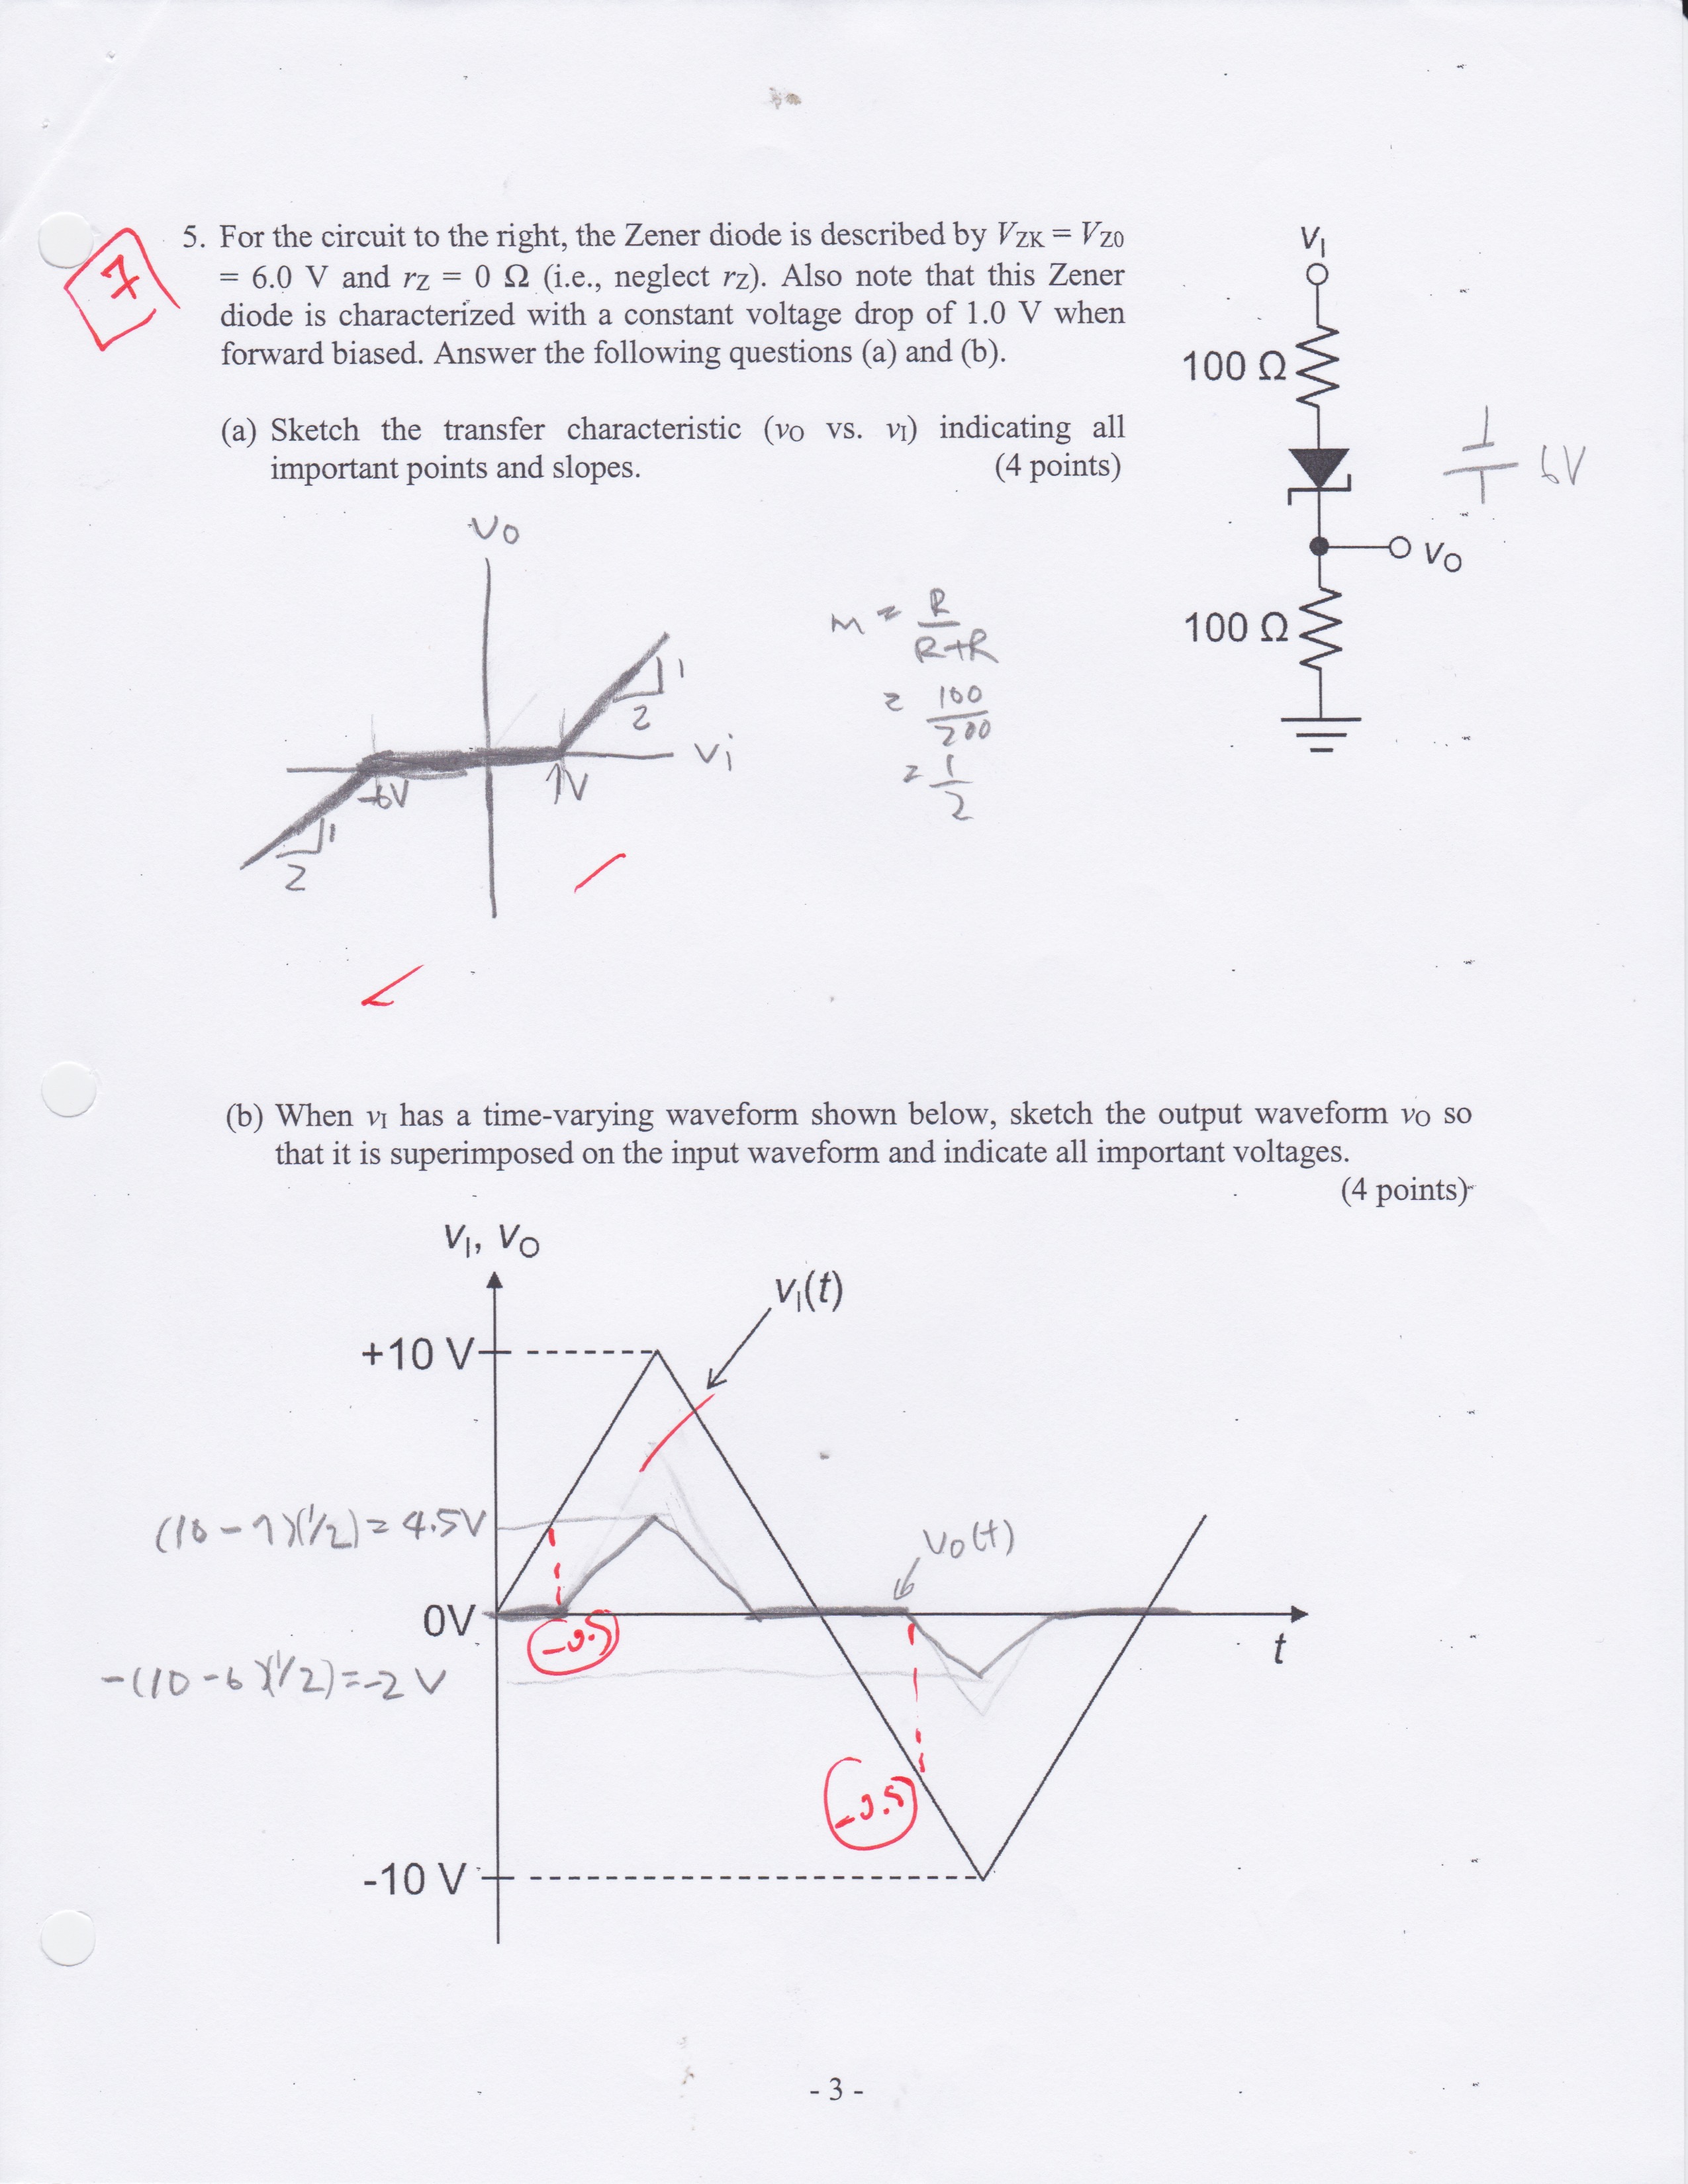 7
5. For the circuit to the right, the Zener diode is described by VZK = VZ0
= 6.0 V and rZ = 0 Ω (i.e., neglect rZ). Also note that this Zener
diode is characterized with a constant voltage drop of 1.0 V when
forward biased. Answer the following questions (a) and (b).
VI
100 Ω
6V
VO
100 Ω
(a) Sketch the transfer characteristic (vO vs. vI) indicating all
important points and slopes. (4 points)
Vo
1
2
Vi
-6V
1V
1
2
m = R
R+R
= 100
200
= 1
2
(b) When vI has a time-varying waveform shown below, sketch the output waveform vO so
that it is superimposed on the input waveform and indicate all important voltages.
(4 points)
VI, VO
VI(t)
+10 V
(10-1)(1/2)=4.5V
Vo(t)
0V
-0.5
t
-(10-6)(1/2)=-2V
-0.5
-10 V
- 3 -